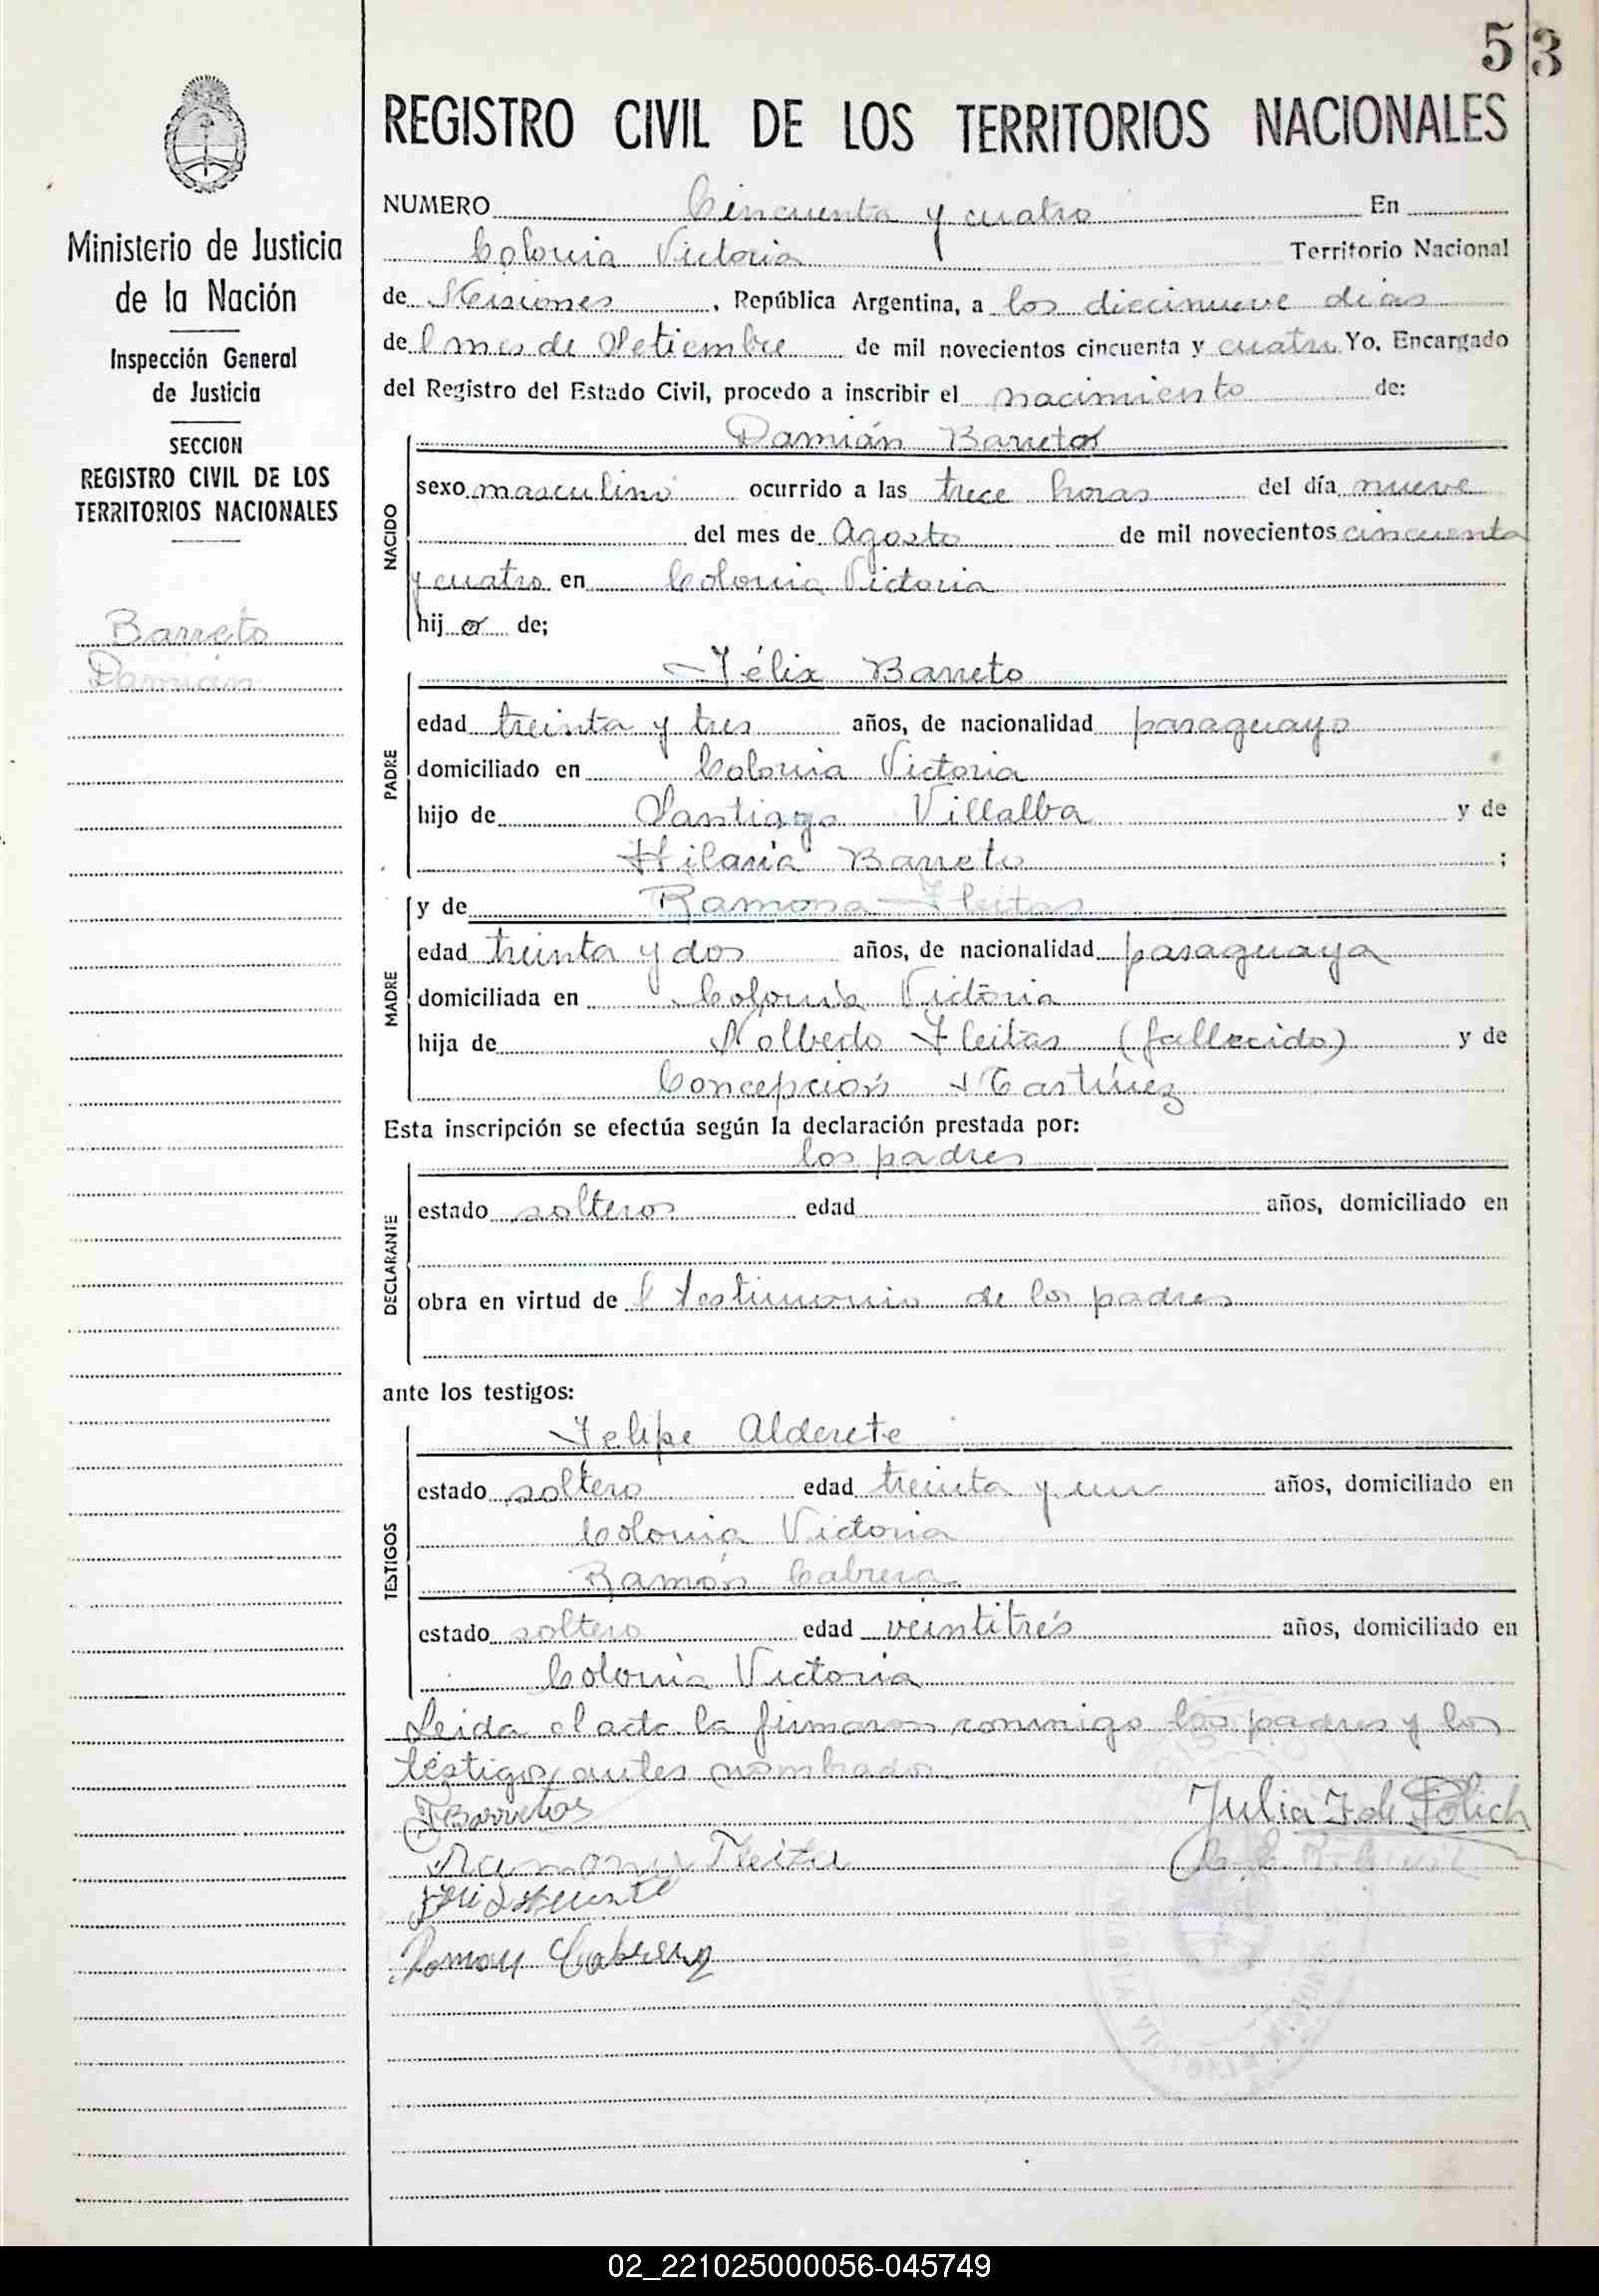 53
REGISTRO CIVIL DE LOS TERRITORIOS NACIONALES
Ministerio de Justicia
de la Nación
Inspección General
de Justicia
SECCION
REGISTRO CIVIL DE LOS
TERRITORIOS NACIONALES
Barreto
Damián
NUMERO Cincuenta y cuatro En
Colonia Victoria Territorio Nacional
de Misiones, República Argentina, a los diecinueve días
del mes de Setiembre de mil novecientos cincuenta y cuatro Yo, Encargado
del Registro del Estado Civil, procedo a inscribir el nacimiento de:
NACIDO
Damián Barreto
sexo masculino ocurrido a las trece horas del día nueve
del mes de Agosto de mil novecientos cincuenta
y cuatro en Colonia Victoria
hijo de;
PADRE
Félix Barreto
edad treinta y tres años, de nacionalidad paraguayo
domiciliado en Colonia Victoria
hijo de Santiago Villalba y de
Hilaria Barreto ;
MADRE
y de Ramona Fleitas
edad treinta y dos años, de nacionalidad paraguaya
domiciliada en Colonia Victoria
hija de Nolberto Fleitas (fallecido) y de
Concepción Martínez
Esta inscripción se efectúa según la declaración prestada por:
DECLARANTE
los padres
estado solteros edad años, domiciliado en
obra en virtud del testimonio de los padres
ante los testigos:
TESTIGOS
Felipe Alderete
estado soltero edad treinta y un años, domiciliado en
Colonia Victoria
Ramón Cabrera
estado soltero edad veintitrés años, domiciliado en
Colonia Victoria
Leida el acta la firmaron conmigo los padres y los
testigos antes nombrados
F Barretos
Julia F. de Polich
Ramona Fleita
Roman Cabrera
02_221025000056-045749